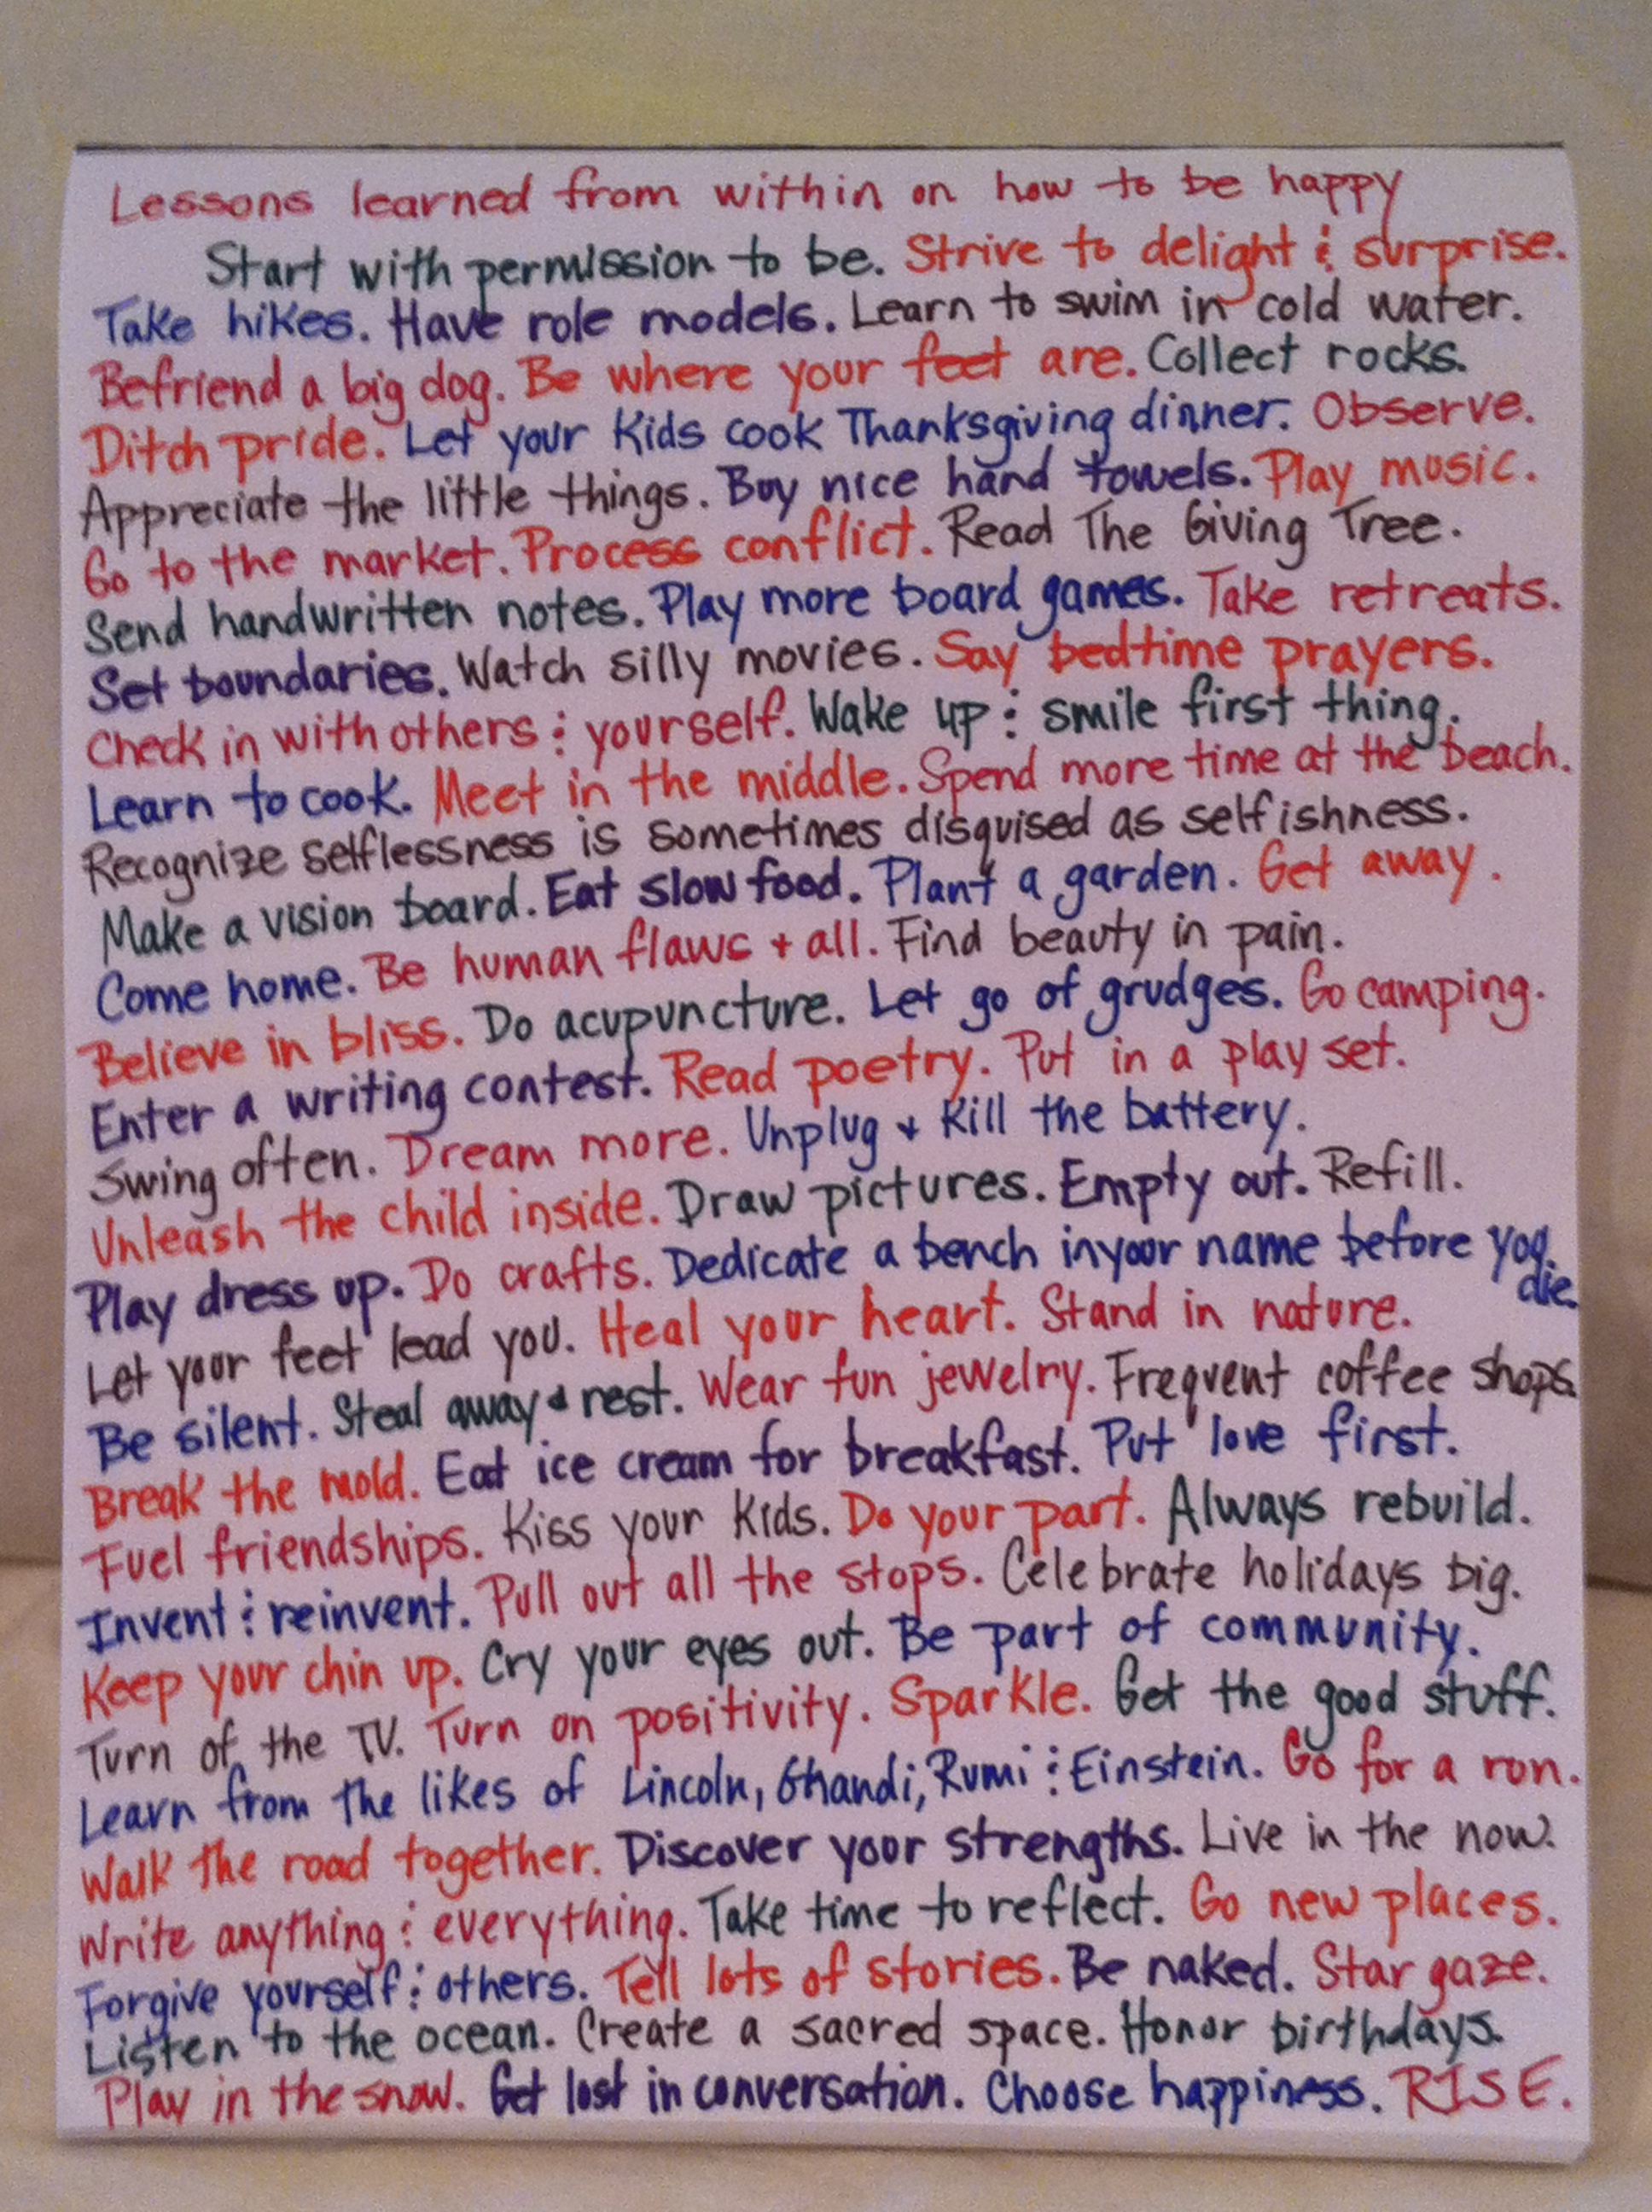 Lessons learned from within on how to be happy
Start with permission to be. Strive to delight & surprise.
Take hikes. Have role models. Learn to swim in cold water.
Befriend a big dog. Be where your feet are. Collect rocks.
Ditch pride. Let your kids cook Thanksgiving dinner. Observe.
Appreciate the little things. Buy nice hand towels. Play music.
Go to the market. Process conflict. Read The Giving Tree.
Send handwritten notes. Play more board games. Take retreats.
Set boundaries. Watch silly movies. Say bedtime prayers.
Check in with others & yourself. Wake up & smile first thing.
Learn to cook. Meet in the middle. Spend more time at the beach.
Recognize selflessness is sometimes disguised as selfishness.
Make a vision board. Eat slow food. Plant a garden. Get away.
Come home. Be human flaws + all. Find beauty in pain.
Believe in bliss. Do acupuncture. Let go of grudges. Go camping.
Enter a writing contest. Read poetry. Put in a play set.
Swing often. Dream more. Unplug + Kill the battery.
Unleash the child inside. Draw pictures. Empty out. Refill.
Play dress up. Do crafts. Dedicate a bench in your name before you die.
Let your feet lead you. Heal your heart. Stand in nature.
Be silent. Steal away & rest. Wear fun jewelry. Frequent coffee shops.
Break the mold. Eat ice cream for breakfast. Put love first.
Fuel friendships. Kiss your kids. Do your part. Always rebuild.
Invent & reinvent. Pull out all the stops. Celebrate holidays big.
Keep your chin up. Cry your eyes out. Be part of community.
Turn of the TV. Turn on positivity. Sparkle. Get the good stuff.
Learn from the likes of Lincoln, Ghandi, Rumi & Einstein. Go for a run.
Walk the road together. Discover your strengths. Live in the now.
Write anything & everything. Take time to reflect. Go new places.
Forgive yourself & others. Tell lots of stories. Be naked. Star gaze.
Listen to the ocean. Create a sacred space. Honor birthdays.
Play in the snow. Get lost in conversation. Choose happiness. RISE.